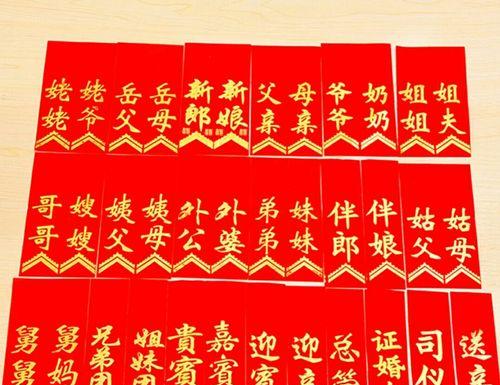 姥姥
姥爷
岳父
岳母
新郎
新娘
父亲
母亲
爷爷
奶奶
姐姐
姐夫
哥哥
嫂嫂
姨父
姨母
外公
外婆
弟弟
妹妹
伴郎
伴娘
姑父
姑母
舅舅
舅妈
兄弟团
姐妹团
貴賓
嘉賓
迎宾
迎亲
总
证婚
司仪
送亲